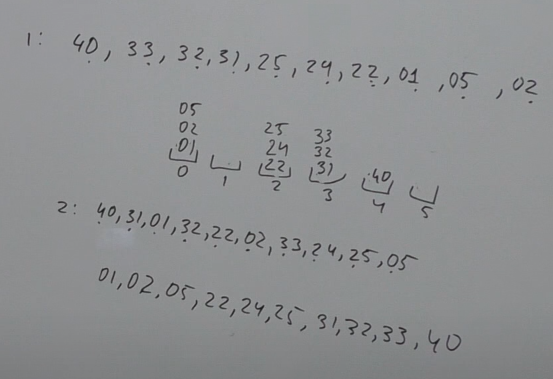 1: 40, 33, 32, 31, 25, 24, 22, 01, 05, 02
05 25 33
02 24 32
01 22 31 40
0 1 2 3 4 5
2: 40, 31, 01, 32, 22, 02, 33, 24, 25, 05
01, 02, 05, 22, 24, 25, 31, 32, 33, 40